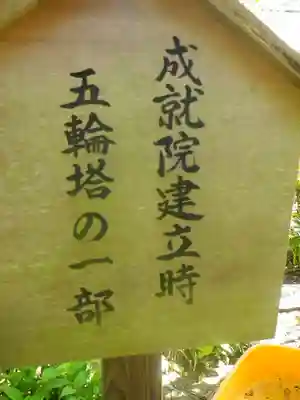 成就院建立時
五輪塔の一部